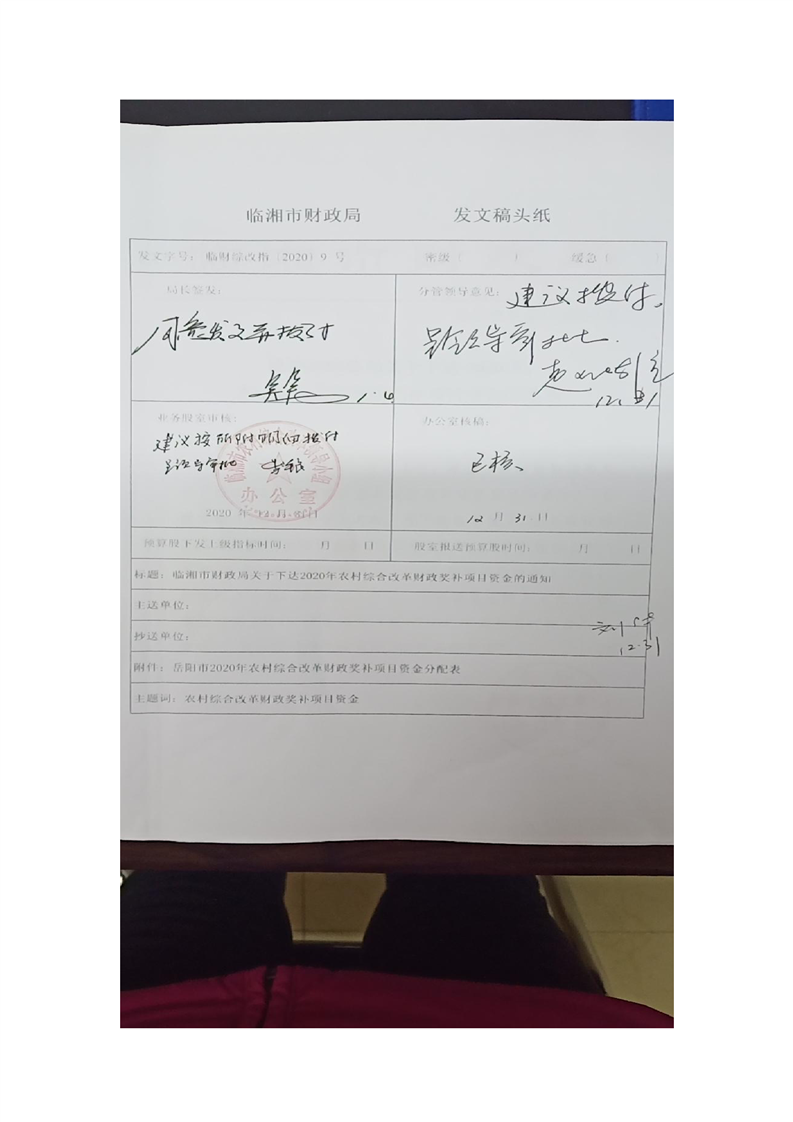 临湘市财政局 发文稿头纸
发文字号：临财综改指〔2020〕9 号 密级（ ） 缓急（ ）
局长签发：
同意发文并拨付
1.4
分管领导意见：
建议拨付，
呈
12.31
业务股室审核：
建议按所附明细拨付
办公室
2020 年 12 月 31 日
办公室核稿：
已核
12 月 31 日
预算股下发上级指标时间： 月 日 股室报送预算股时间： 月 日
标题：临湘市财政局关于下达2020年农村综合改革财政奖补项目资金的通知
主送单位：
抄送单位：
12.31
附件：岳阳市2020年农村综合改革财政奖补项目资金分配表
主题词：农村综合改革财政奖补项目资金